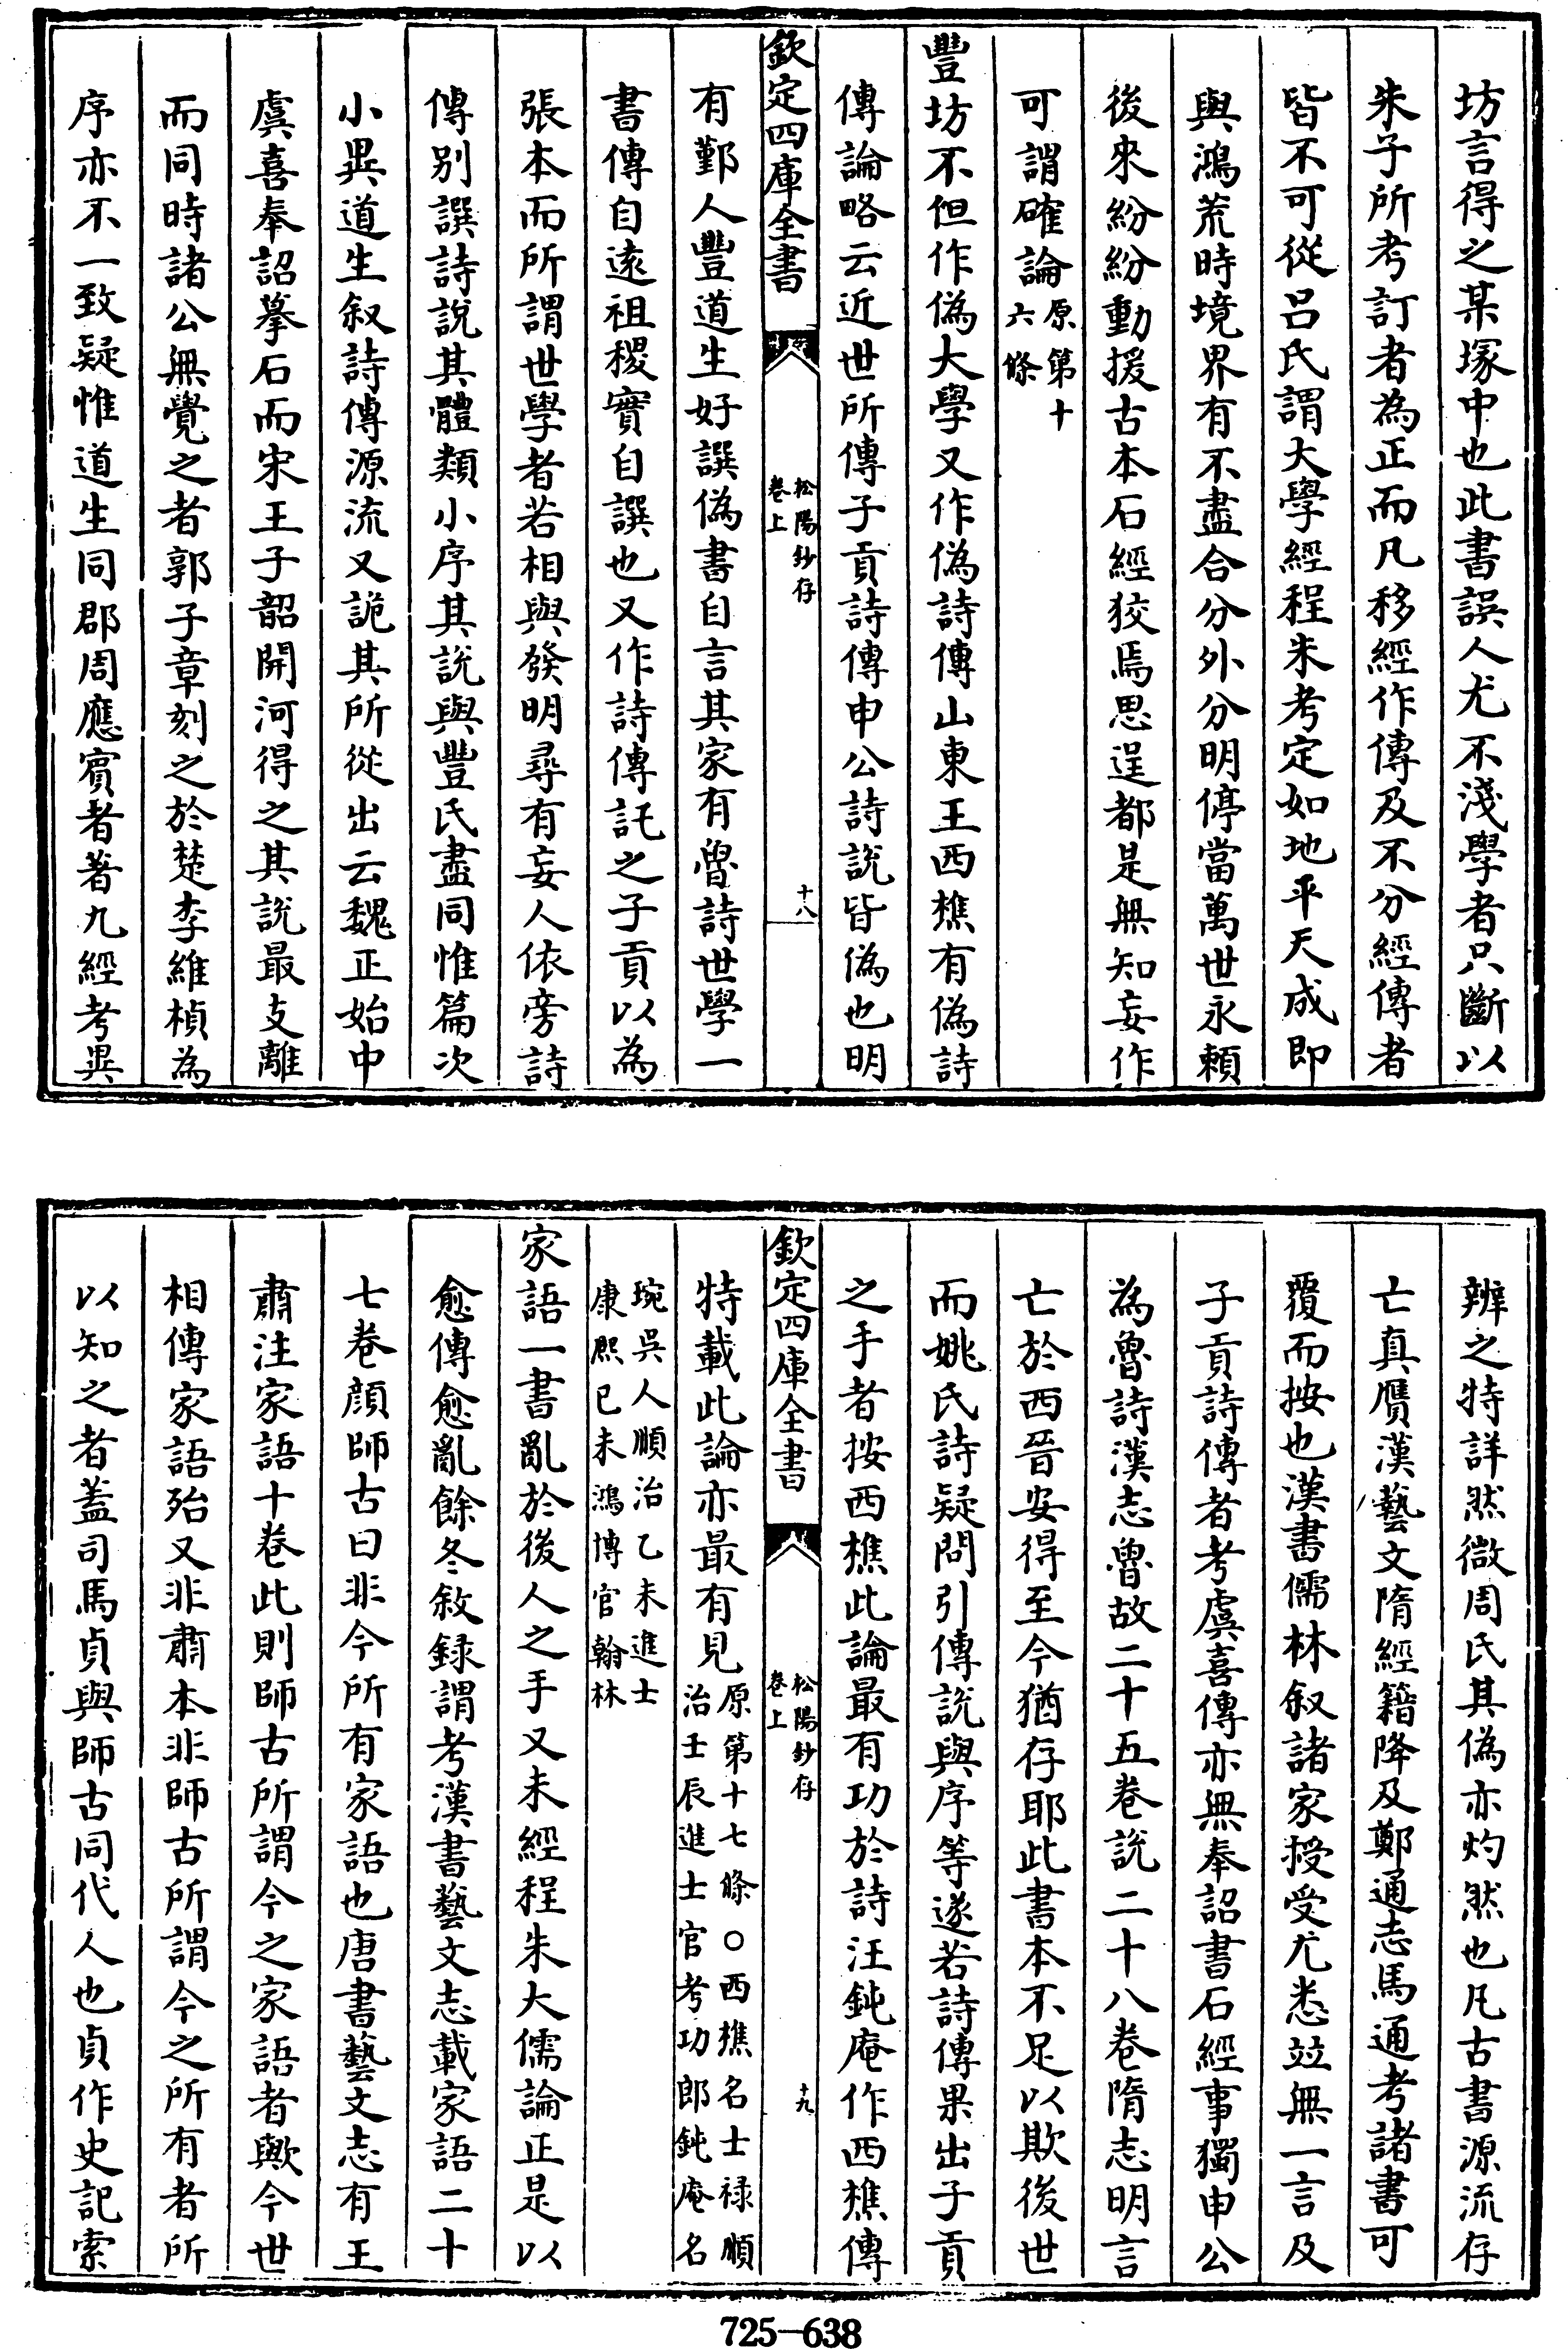 坊言得之某塚中也此書誤人尤不淺學者只斷以
朱子所考訂者為正而凡移經作傳及不分經傳者
皆不可從吕氏謂大學經程朱考定如地平天成即
與鴻荒時境界有不盡合分外分明停當萬世永頼
後來紛紛動援古本石經狡焉思逞都是無知妄作
可謂確論原第十六條
豐坊不但作偽大學又作偽詩傳山東王西樵有偽詩
傳論略云近世所傳子貢詩傳申公詩説皆偽也明
欽定四庫全書 松陽鈔存卷上 十八
有鄞人豐道生好譔偽書自言其家有魯詩世學一
書傳自逺祖稷實自譔也又作詩傳託之子貢以為
張本而所謂世學者若相與發明尋有妄人依旁詩
傳别譔詩説其體類小序其説與豐氏盡同惟篇次
小異道生叙詩傳源流又詭其所從出云魏正始中
虞喜奉詔摹石而宋王子韶開河得之其説最支離
而同時諸公無覺之者郭子章刻之於楚李維楨為
序亦不一致疑惟道生同郡周應賔者著九經考異
辨之特詳然微周氏其偽亦灼然也凡古書源流存
亡真贋漢藝文隋經籍降及鄭通志馬通考諸書可
覆而按也漢書儒林叙諸家授受尤悉竝無一言及
子貢詩傳者考虞喜傳亦無奉詔書石經事獨申公
為魯詩漢志魯故二十五卷説二十八卷隋志明言
亡於西晉安得至今猶存耶此書本不足以欺後世
而姚氏詩疑問引傳説與序等遂若詩傳果出子貢
之手者按西樵此論最有功於詩汪鈍庵作西樵傳
欽定四庫全書 松陽鈔存卷上 十九
特載此論亦最有見原第十七條○西樵名士禄順治壬辰進士官考功郎鈍庵名
琬吳人順治乙未進士康熙已未鴻博官翰林
家語一書亂於後人之手又未經程朱大儒論正是以
愈傳愈亂餘冬敘録謂考漢書藝文志載家語二十
七卷顔師古曰非今所有家語也唐書藝文志有王
肅注家語十卷此則師古所謂今之家語者歟今世
相傳家語殆又非肅本非師古所謂今之所有者所
以知之者葢司馬貞與師古同代人也貞作史記索
725-638